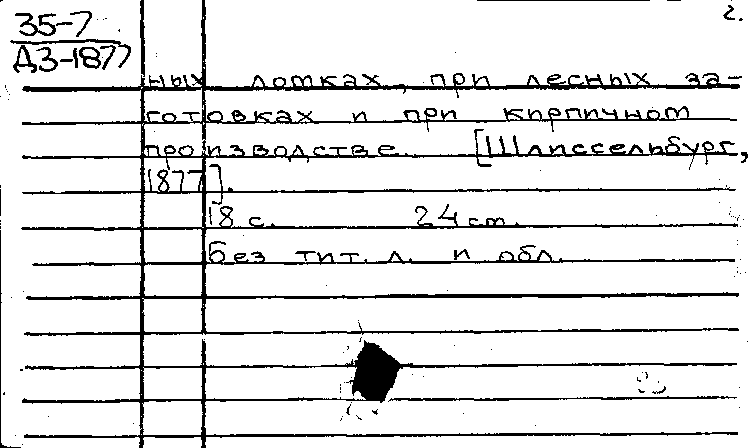 2.
35-7
ДЗ-1877
ных ломках, при лесных за-
готовках и при кирпичном
производстве. [Шлиссельбург,
1877].
18 с. 24 см.
Без тит. л. и обл.